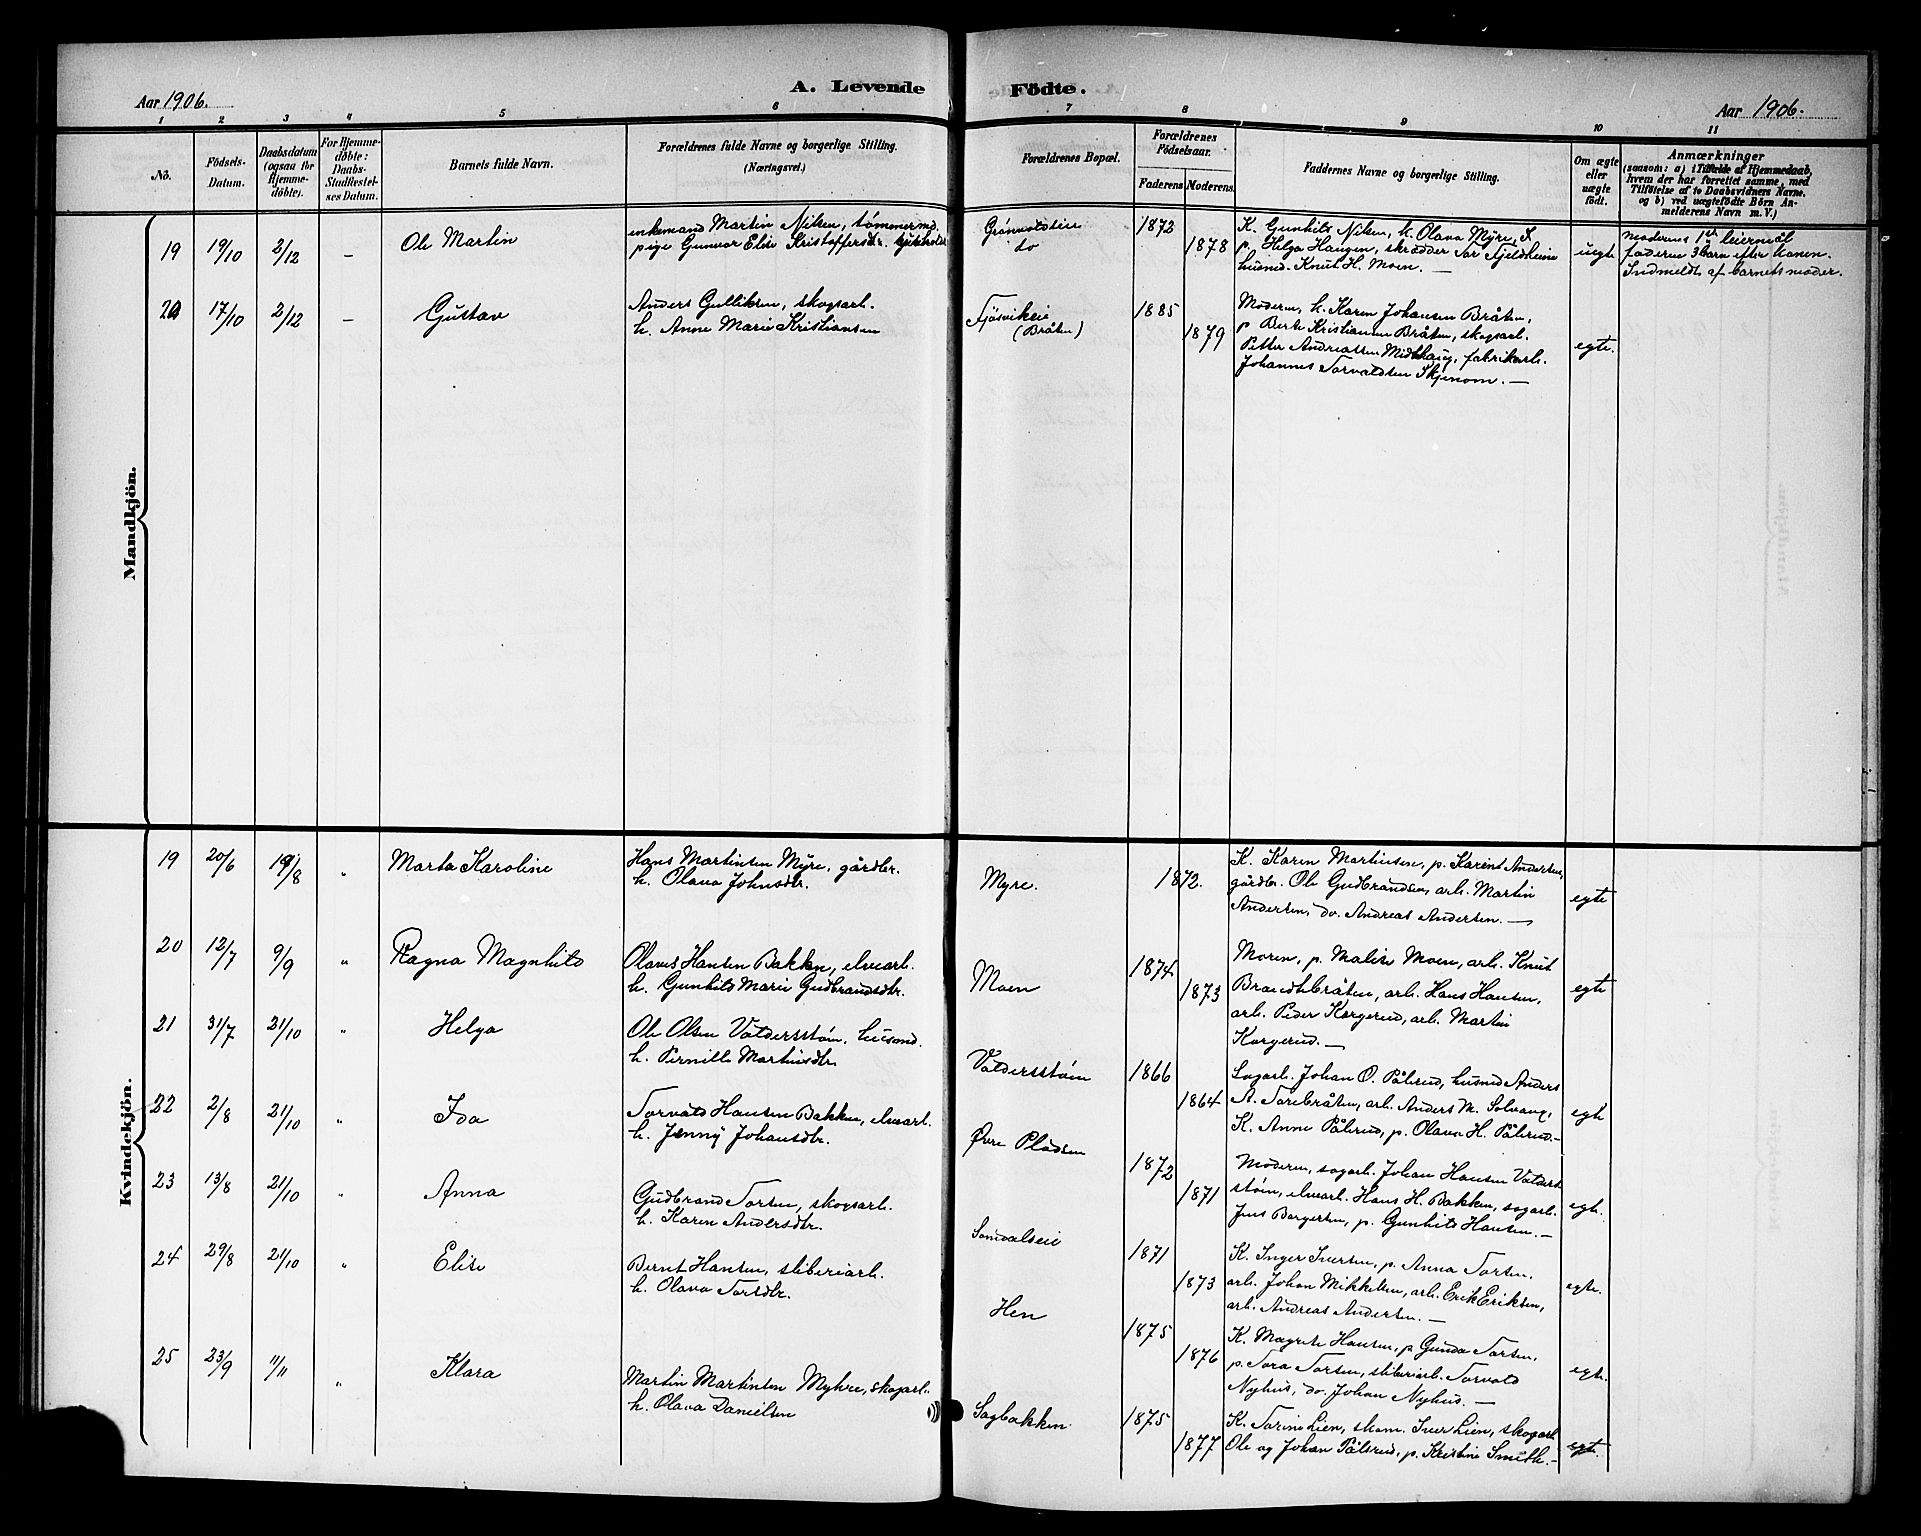 A. Levende Födte.
Aar 1906.
Aar 1906.
1 2 3 4 5 6 7 8 9 10 11
No.
Födsels-Datum.
Daabsdatum (ogsaa for Hjemmedöbte).
For Hjemmedöbte: Daabs-Stadfæstelses Datum.
Barnets fulde Navn.
Forældrenes fulde Navne og borgerlige Stilling. (Næringsvei.)
Forældrenes Bopæl.
Forældrenes Födselsaar.
Faderens Moderens.
Faddernes Navne og borgerlige Stilling.
Om ægte eller uægte födt.
Anmærkninger
(saasom: a) i Tilfælde af Hjemmedaab,
hvem der har forrettet samme, med
Tilföielse af to Daabsvidners Navne.
og b) ved uægtefödte Börn An-
melderens Navn m. V.)
Mandkjön.
19 19/10 2/12 – Ole Martin
enkemand Martin Nilsen, tømmermd.
pige Gunvor Elise Kristoffersdr.
do
1872
1878
K. Gunhild Nilsen, h. Olava Myre,
p. Helga Haugen, skrædder Tor Fjeldheim
husmd. Knut H. Moen. —
uegte
moderens 1ste leiermål
faderens 3 barn efter konen.
Indmeldt af barnets moder.
20 17/10 2/12 – Gustav
Anders Gulliksen, skogsarb.
h. Anne Marie Kristiansen
Fjøsvikeie
(Bråten)
1885
1879
Moderen, h. Karen Johansen Bråten,
p. Berte Kristiansen Bråten, skogsarb.
Petter Andreassen Midthaug, fabrikarb.
Johannes Torvaldsen Skjenom. —
egte.
Kvindekjön.
19 20/6 19/8 " Marta Karoline
Hans Martinsen Myre, gårdbr.
h. Olava Johnsdtr.
Myre.
1872.
K. Karen Martinsen, p. Karen Andersen,
gårdbr. Ole Gudbrandsen, arb. Martin
Andersen, do. Andreas Andersen. —
egte
20 12/7 9/9 " Ragna Magnhild
Olaves Hansen Bakken, elvearb.
h. Gunhild Marie Gudbrandsdtr.
Moen
1874
1873
Moren, p. Malise Moen, arb. Knut
Brændthbråten, arb. Hans Hansen,
arb. Peder Korgerud, arb. Martin
Korgerud. —
egte
21 31/7 21/10 " Helga
Ole Olsen Valdersstøm, husmd.
h. Pernille Martinsdtr.
Valdersstøm
1866
1864
Sagarb. Johan O. Pålerud, husmd Anders
A. Torebråten, arb. Anders M. Solvang,
K. Anne Pålerud, p. Olava H. Pålerud. —
egte
22 2/8 21/10 " Ida
Torvald Hansen Bakken, elvearb.
h. Jenny Johansdtr.
Øvre Pladsen
1872
1871
Moderen, sagarb. Johan Hansen Valders
støm, elvearb. Hans H. Bakken, sagarb.
Jens Borgersen, p. Gunhild Hansen. —
egte.
23 13/8 21/10 " Anna
Gudbrand Torsen, skogsarb.
h. Karen Andersdtr.
Somdalseie
1871
1873
K. Inger Iversen, p. Anna Torsen,
arb. Johan Mikkelsen, arb. Erik Eriksen,
arb. Andreas Andersen. —
egte.
24 29/8 21/10 " Elise
Bernt Hansen, sliberiarb.
h. Olava Torsdtr.
Hen
1875
1876
K. Magrete Hansen, p. Gunda Torsen,
p. Tora Torsen, sliberiarb. Torvald
Nyhus, do. Johan Nyhus. —
egte.
25 23/9 11/11 " Klara
Martin Martinsen Myhre, skogarb.
h. Olava Danielsen
Sagbakken.
1875
1877
K. Torine Lien, skom. Iver Lien, skogarb.
Ole og Johan Pålerud, p. Kristine Smith. —
egte.